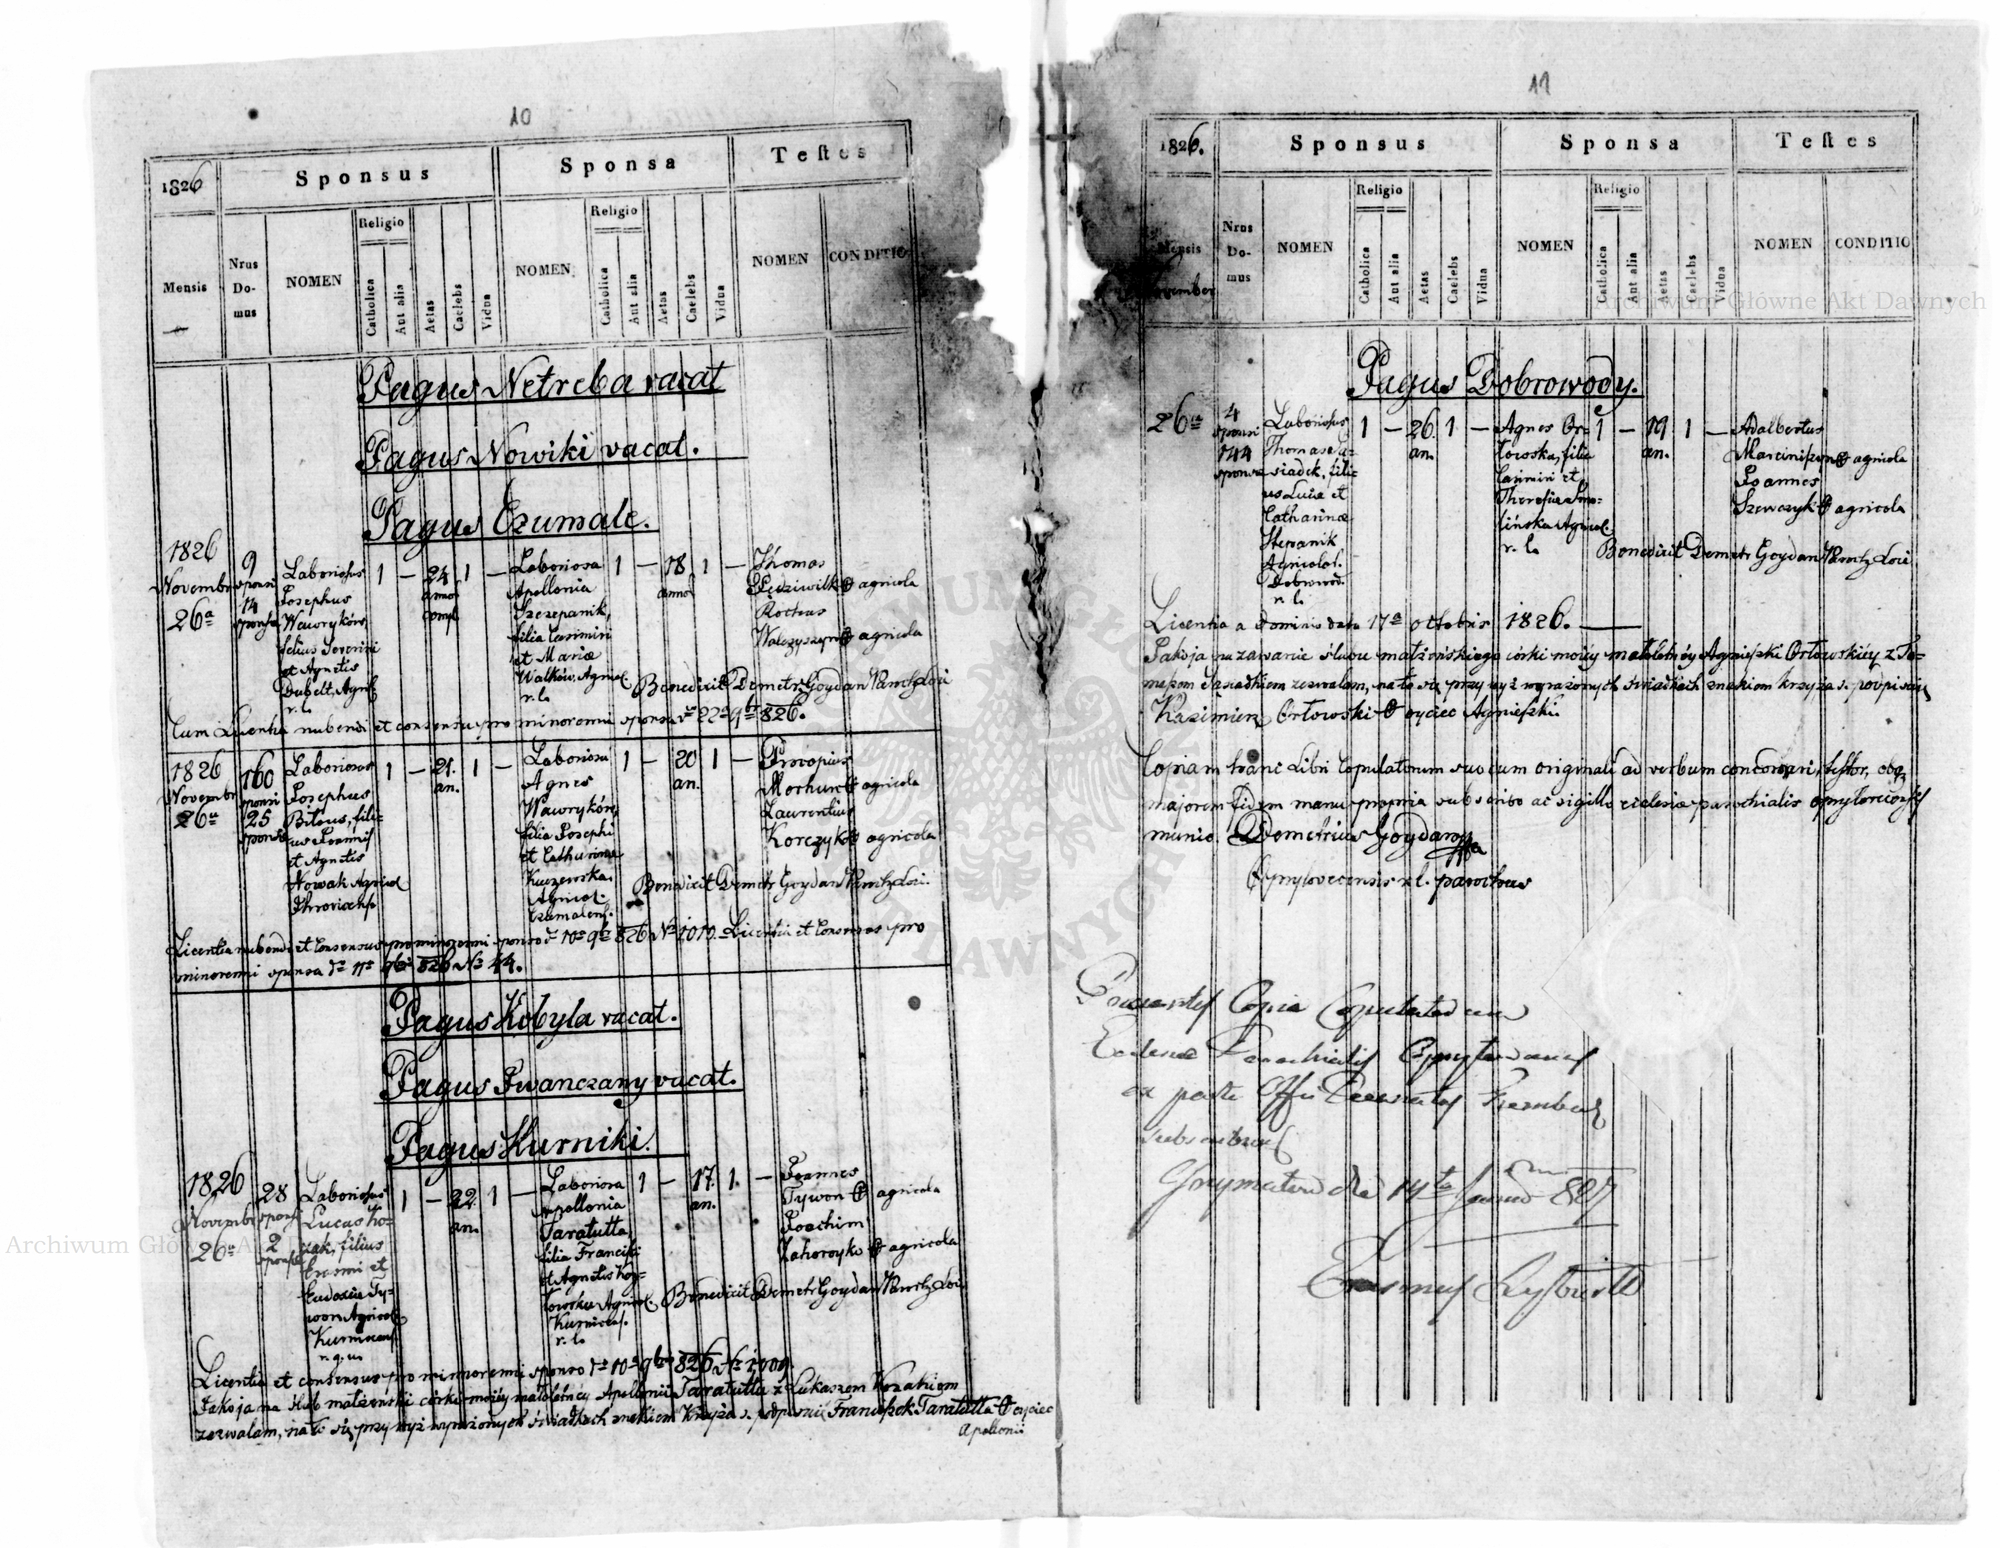 10
1826
Sponsus
Sponsa
Testes
Mensis
Nrus Domus
NOMEN
Religio
Catholica
Aut alia
Aetas
Caelebs
Vidua
NOMEN
Religio
Catholica
Aut alia
Aetas
Caelebs
Vidua
NOMEN
CONDITIO
Pagus Netreba vacat
Pagus Nowiki vacat.
Pagus Czumale.
1826
Novembr
26a
9
sponsi
14
sponsae
Laboriosus
Josephus
Wawryków,
filius Severini
et Agnetis
Dubelt, Agricol.
r. l.
1 — 24 1 —
anno
compl.
Laboriosa
Apollonia
Szczepanik,
filia Casimiri
et Mariæ
Walków, Agricol.
r. l.
1 — 18 1 —
anno
Thomas
Pędziwilk + agricola
Rochus
Walczyszyn + agricola
Benedixit Demetr Goydan Paroch Loci
Cum Licentia nubendi et consensu pro minorenni sponsa de 22a 9bris 826.
1826
Novembr
26a
160
sponsi
25
sponsae
Laboriosus
Josephus
Bitous, fili-
us Joannis
et Agnetis
Nowak Agricol
1 — 21. 1 —
an.
Laboriosa
Agnes
Wawryków,
filia Josephi
et Catharinæ
Kuczewska.
Agricol.
Czumalens.
1 — 20 1 —
an.
Procopius
Mochurc + agricola
Laurentius
Korczyk + agricola
Benedixit Demetr Goydan Paroch Loci.
Licentia nubendi et Consensus pro minorenni sponso de 10a 9bris 826 No 1010. Licentia et Consensus pro
minorenni sponsa de 11a 9bris 826 No 44.
Pagus Kobyla vacat.
Pagus Iwanczany vacat.
Pagus Kurniki.
1826
Novembr
26a
28
sponsi
2
sponsae
Laboriosus
Lucas Ko-
zak, filius
Erasmi et
Eudoxiæ Ty-
won Agricol
Kurnicens.
r. g. u.
1 — 22 1 —
an.
Laboriosa
Apollonia
Taratutta
filia Francisci
et Agnetis Koz-
łowska Agricol.
Kurnicens.
r. l.
1 — 17. 1. —
an.
Joannes
Tywon + agricola
Joachim
Zahoroyko + agricola
Benedixit Demetr Goydan Paroch Loci
Licentia et consensus pro minorenni sponso de 10a 9bris 826 No 1009.
Ja ksja na ślub małżeński córki moiéy małoletniéy Apollonii Taratutta z Łukaszem Kozakiem
zezwalam, na to się przy wyż wyrażonych świadkach znakiem Krzyża s. podpisuię Franciszek Taratutta + oyciec
Apollonii
11
1826.
Sponsus
Sponsa
Testes
Mensis
November
Nrus Domus
NOMEN
Religio
Catholica
Aut alia
Aetas
Caelebs
Vidua
NOMEN
Religio
Catholica
Aut alia
Aetas
Caelebs
Vidua
NOMEN
CONDITIO
Pagus Dobrowody.
26a
4
sponsi
144
sponsae
Laboriosus
Thomas Sa-
siadek, fili-
us Lucæ et
Catharinæ
Stepanik
Agricol.
Dobrowod.
r. l.
1 — 26. 1 —
an.
Agnes Or-
łowska, filia
Casimiri et
Theresiæ Smo-
lińska Agricol.
r. l.
1 — 19. 1 —
an.
Adalbertus
Marciniszyn + agricola
Joannes
Szewczyk + agricola
Benedixit Demetr Goydan Paroch Loci
Licentia a Dominio dato 17a octobris 1826. —
Ja ksja na zawarcie ślubu małżeńskiego córki moiéy małoletniéy Agnieszki Orłowskiéy z To-
maszem Sasiadkiem zezwalam, na to się przy wyż wyrażonych świadkach znakiem krzyża s. podpisuię
Kazimierz Orłowski + oyciec Agnieszki.
Copiam hanc Libri Copulatorum suo cum originali ad verbum concordari, testor, ob
majorem fidem manu propria subscribo ac sigillo ecclesiæ parochialis opryloviecensis
munio. Demetrius Goydan
Opryloviecensis r. l. parochus
Præsentes Copia Copulatorum
Ecclesiæ Parochialis
ex parte Offii Decanatus
subscribuntur
Grzymałów die 14ta 827
Erasmus
Archiwum Główne Akt Dawnych
Archiwum Główne Akt Dawnych